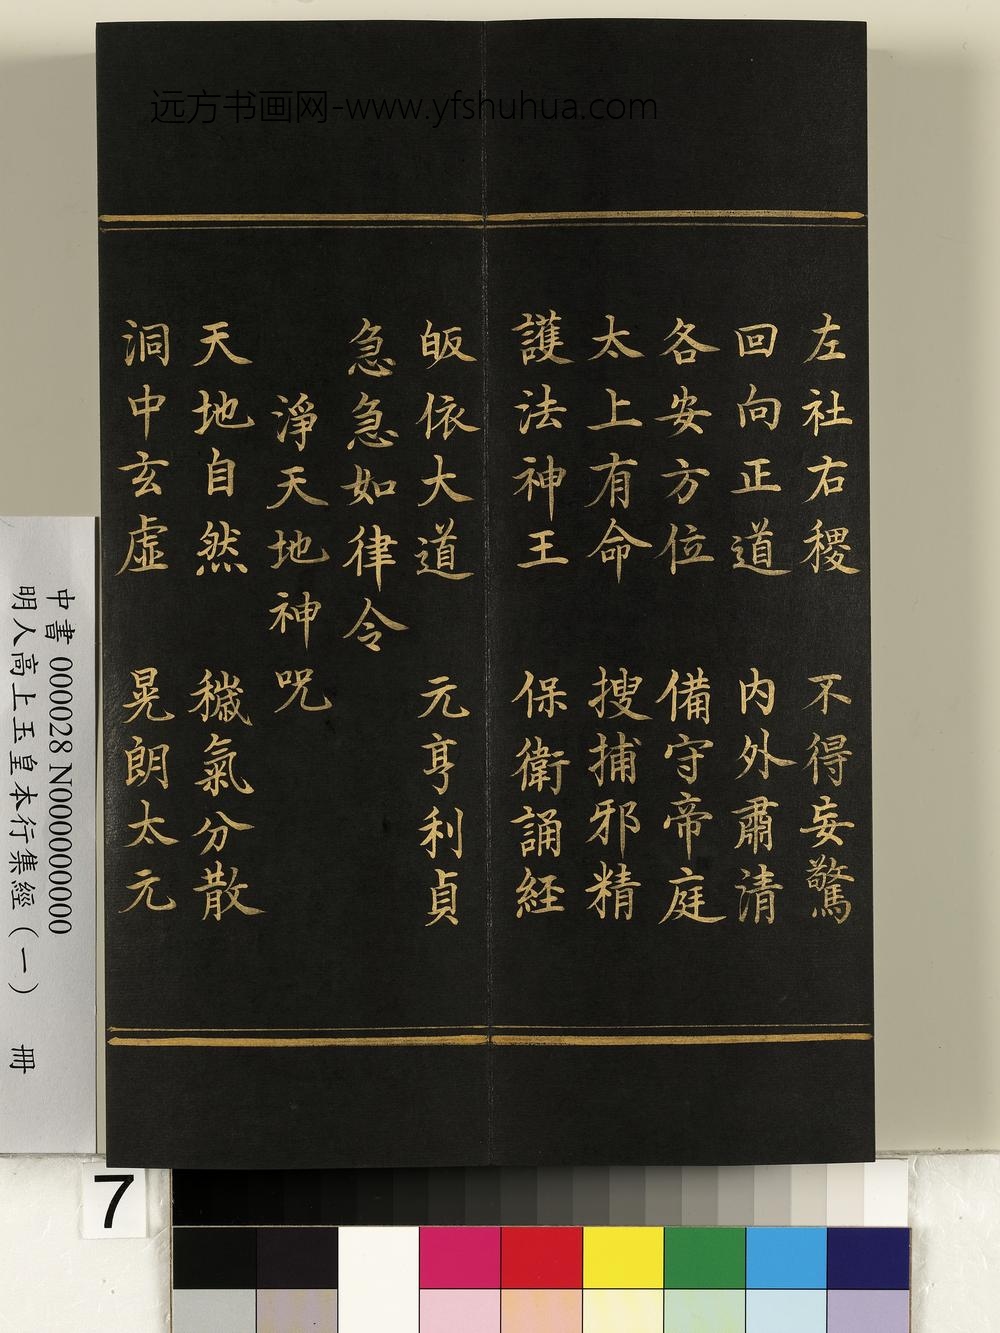 远方书画网-www.yfshuhua.com
左社右稷 不得妄驚
回向正道 內外肅清
各安方位 備守帝庭
太上有命 搜捕邪精
護法神王 保衛誦經
皈依大道 元亨利貞
急急如律令
淨天地神呪
天地自然 穢氣分散
洞中玄虛 晃朗太元
中書 000028 N000000000
明人高上玉皇本行集經（一） 冊
7